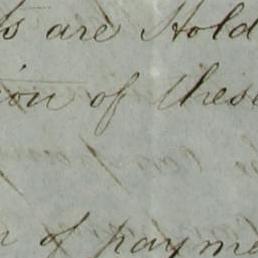 s are Hold
ion of these
of payme